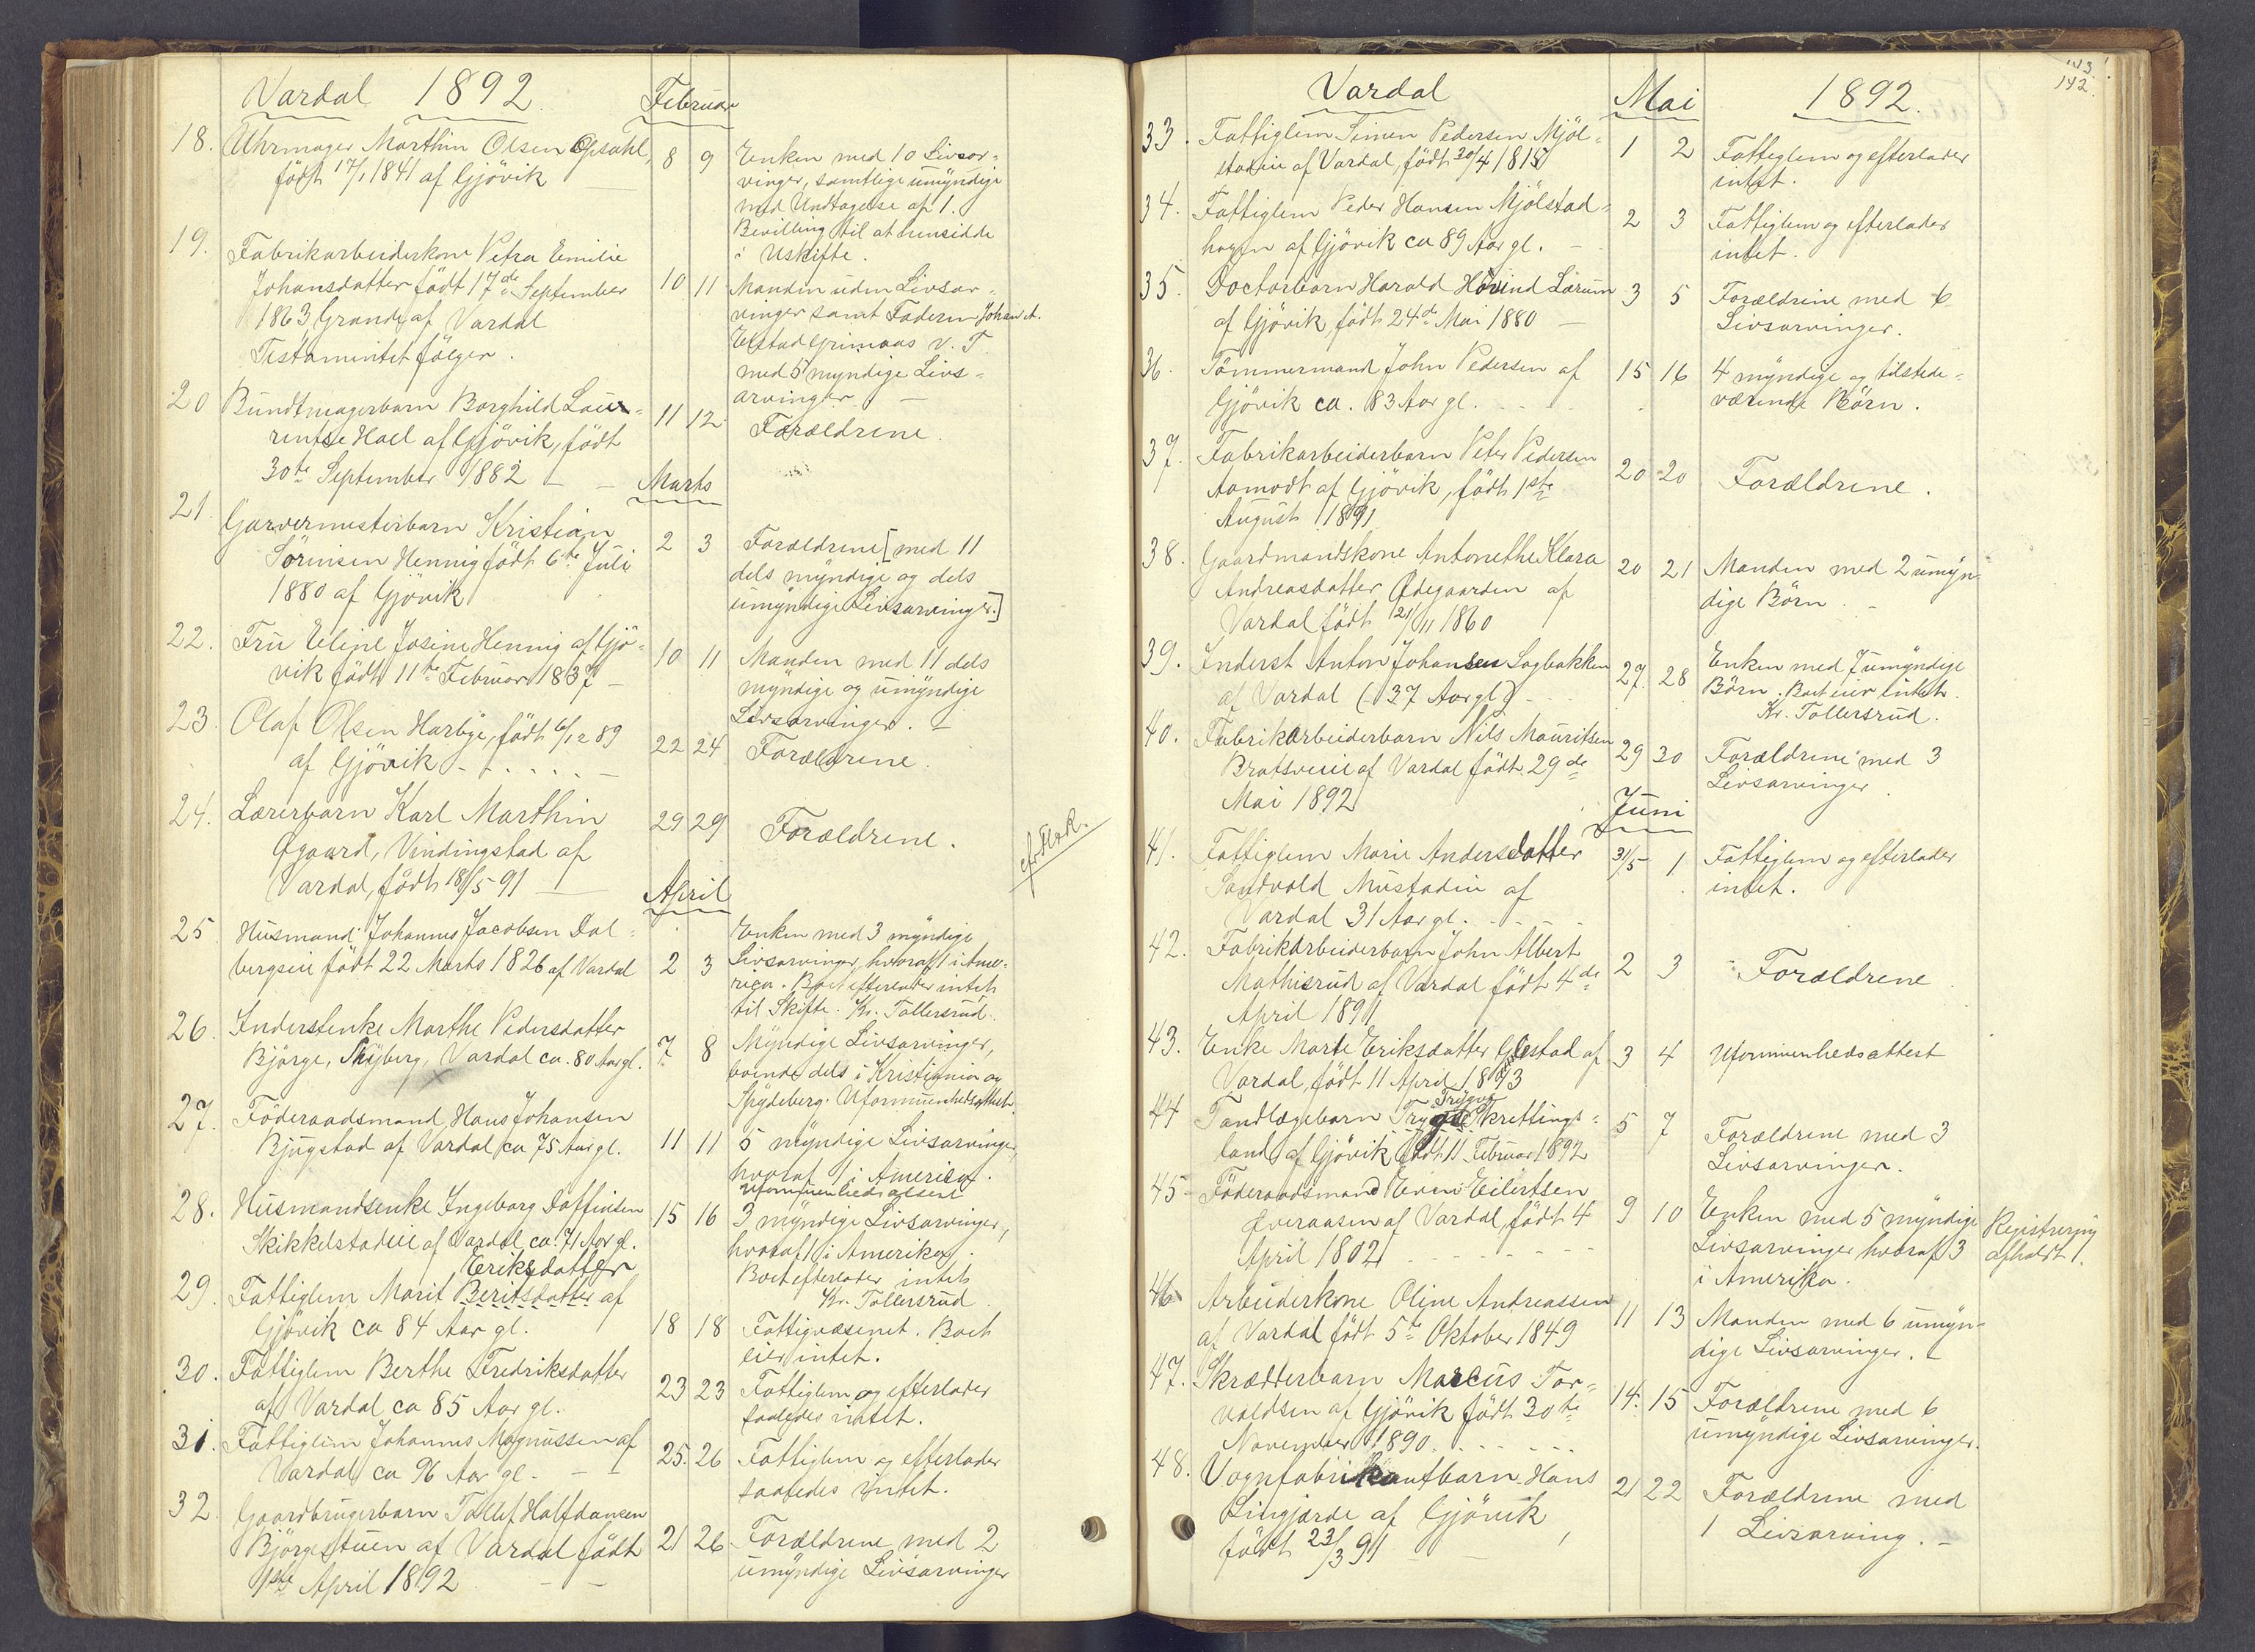 Vardal 1892. Februar
18. Uhrmager Marthin Olsen Opsahl, 8 9 Enken med 10 Livsar-
født 17/1 1841 af Gjøvik vinger, samtlige umyndige
med Undtagelse af 1.
Bevilling til at hensidde
i Uskifte.
19. Fabrikarbeiderkone Petra Emilie
Johansdatter født 17de September 10 11 Manden uden Livsar-
1863 Grande af Vardal vinger samt Faderen Johan A.
Testamentet følger. Elstad Grimaas v. T.
med 5 myndige Livs-
arvinger. —
20 Bundtmagerbarn Borghild Lau- 11 12 Forældrene.
rentse Hoel af Gjøvik, født
30te September 1882 — —
Marts
21. Garvermesterbarn Kristian
Sørensen Hennig født 6te Juli 2 3 Forældrene [med 11
1880 af Gjøvik dels myndige og dels
umyndige Livsarvinger.]
22. Fru Eline Josine Hennig af Gjø- 10 11 Manden med 11 dels
vik født 11te Februar 1837 — myndige og umyndige
Livsarvinger. —
23. Olaf Olsen Harbye, født 6/12 89 22 24 Forældrene.
af Gjøvik
24. Lærerbarn Karl Marthin 29 29 Forældrene.
Øgaard, Vindingstad af
Vardal, født 18/5 91 —
April
25. Husmand Johannes Jacobsen Dal- Enken med 3 myndige
bergseie født 22 Marts 1826 af Vardal 2 3 Livsarvinger, hvoraf 1 i Ame-
rica. Boet efterlader intet
til Skifte. Kr. Tollersrud.
26. Inderstenke Marthe Pedersdatter 7 8 Myndige Livsarvinger,
Bjørge, Skyberg, Vardal ca. 80 Aar gl. boende dels i Kristiania og
Spydeberg. Uformuenhedsattest.
27. Føderaadsmand Hans Johansen
Bjugstad af Vardal ca 75 Aar gl. 11 11 5 myndige Livsarvinger,
hvoraf 1 i America.
Uformuenhedsattest
28. Husmandsenke Ingeborg Daffinsen 15 16 3 myndige Livsarvinger,
Skikkelstadeie af Vardal ca. 71 Aar gl. hvoraf 1 i Amerika.
Boet efterlader intet
Kr. Tollersrud.
Eriksdatter
29. Fattiglem Marit Beritsdatter af
Gjøvik ca 84 Aar gl. 18 18 Fattigvæsenet. Boet
eier intet.
30. Fattiglem Berthe Fredriksdatter 23 23 Fattiglem og efterlader
af Vardal ca 85 Aar gl. saaledes intet.
31. Fattiglem Johannes Magnussen af 25. 26 Fattiglem og efterlader
Vardal ca 96 Aar gl. — — saaledes intet.
32. Gaardbrugerbarn Tollef Halfdansen
Bjørgestuen af Vardal født 21 26 Forældrene med 2
1ste April 1892 — — umyndige Livsarvinger
Vardal Mai 1892.
142.
33. Fattiglem Simen Pedersen Mjøl- 1 2 Fattiglem og efterlader
stadeie af Vardal, født 30/4 1818 intet.
34. Fattiglem Peder Hansen Mjølstad- 2 3 Fattiglem og efterlader
hagen af Gjøvik ca 89 Aar gl. — intet.
35. Doctorbarn Harald Hovind Lærum 3 5 Forældrene med 6
af Gjøvik, født 24de Mai 1880 — Livsarvinger.
36. Tømmermand John Pedersen af 15 16 4 myndige og tilstede-
Gjøvik ca. 83 Aar gl. værende Børn.
37. Fabrikarbeiderbarn Peter Pedersen 20 20 Forældrene.
Aamodt af Gjøvik, født 1ste
August 1891
38. Gaardmandskone Antonethe Klara 20 21 Manden med 2 umyn-
Andreasdatter Ødegaarden af dige Børn. —
Vardal født 21/11 1860
39. Inderst Anton Johansen Sagbakken 27. 28 Enken med 7 umyndige
af Vardal (37 Aar gl) — Børn. Boet eier intet.
Kr. Tollersrud.
40. Fabrikarbeiderbarn Nils Mauritsen 29 30 Forældrene med 3
Bratsveie af Vardal født 29de Livsarvinger.
Mai 1892
Juni
41. Fattiglem Marie Andersdatter 31/5 1 Fattiglem og efterlader
Sandvold Mustadeie af intet.
Vardal 31 Aar gl.
42. Fabrikarbeiderbarn John Albert 2 3 Forældrene
Mathisrud af Vardal født 4de
April 1891
43. Enke Marte Eriksdatter Glestad af 3 4 Uformuenhedsattest
Vardal, født 11 April 1813
Trygve
44 Tandlægebarn Trygve Skrettings- 5 7 Forældrene med 3
land af Gjøvik født 11 Februar 1892 Livsarvinger.
45 Føderaadsmand Even Eilertsen 9 10 Enken med 5 myndige Registrering
Qveraasen af Vardal, født 4 Livsarvinger hvoraf 3 afholdt 1.
April 1802 i Amerika.
46 Arbeiderkone Oline Andreassen 11 13 Manden med 6 umyn-
af Vardal født 5te Oktober 1849 dige Livsarvinger. —
47. Skrædderbarn Marcus Tor- 14. 15 Forældrene med 6
valdsen af Gjøvik født 30te umyndige Livsarvinger.
November 1890.
48. Vognfabrikantbarn Hans 21 22 Forældrene med
Lingjærde af Gjøvik 1 Livsarving. —
født 23/3 91